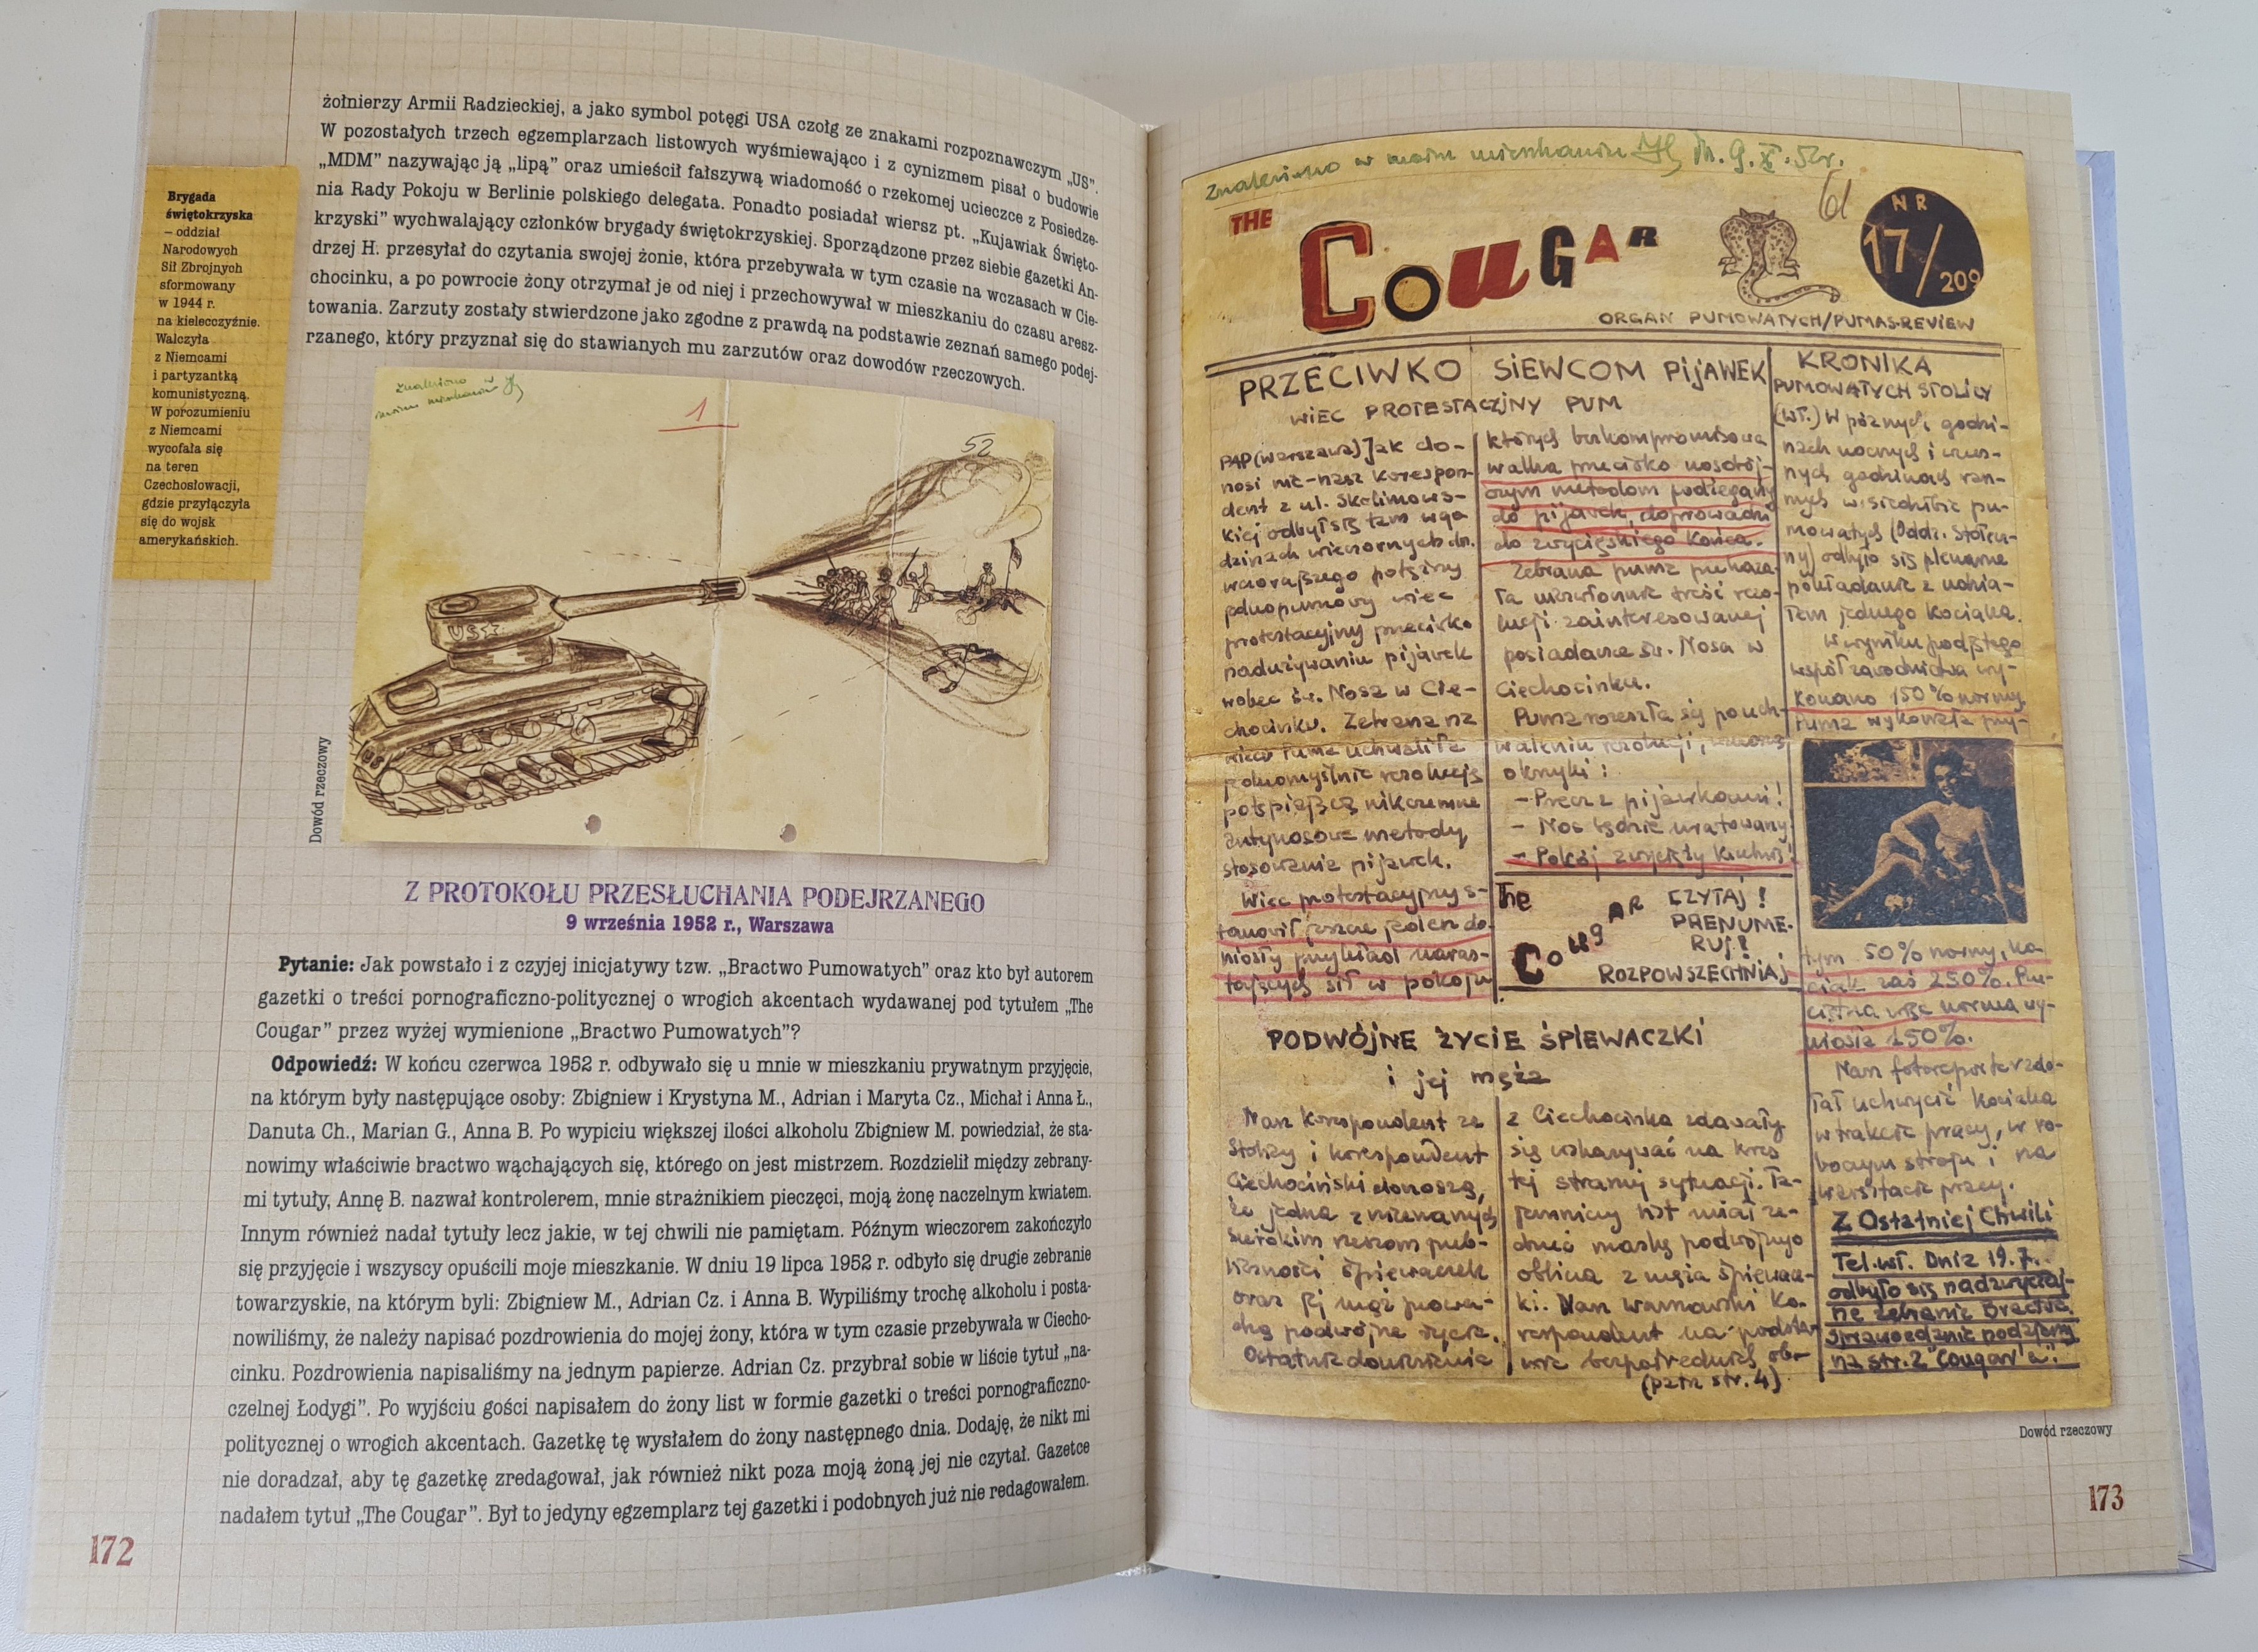 żołnierzy Armii Radzieckiej, a jako symbol potęgi USA czołg ze znakami rozpoznawczym „US”.
W pozostałych trzech egzemplarzach listowych wyśmiewająco i z cynizmem pisał o budowie
„MDM” nazywając ją „lipą” oraz umieścił fałszywą wiadomość o rzekomej ucieczce z Posiedze-
nia Rady Pokoju w Berlinie polskiego delegata. Ponadto posiadał wiersz pt. „Kujawiak Święto-
krzyski” wychwalający członków brygady świętokrzyskiej. Sporządzone przez siebie gazetki An-
drzej H. przesyłał do czytania swojej żonie, która przebywała w tym czasie na wczasach w Cie-
chocinku, a po powrocie żony otrzymał je od niej i przechowywał w mieszkaniu do czasu aresz-
towania. Zarzuty zostały stwierdzone jako zgodne z prawdą na podstawie zeznań samego podej-
rzanego, który przyznał się do stawianych mu zarzutów oraz dowodów rzeczowych.
Brygada
świętokrzyska
– oddział
Narodowych
Sił Zbrojnych
sformowany
w 1944 r.
na kielecczyźnie.
Walczyła
z Niemcami
i partyzantką
komunistyczną.
W porozumieniu
z Niemcami
wycofała się
na teren
Czechosłowacji,
gdzie przyłączyła
się do wojsk
amerykańskich.
znaleziono w
moim mieszkaniu
1
52
US
Dowód rzeczowy
Z PROTOKOŁU PRZESŁUCHANIA PODEJRZANEGO
9 września 1952 r., Warszawa
Pytanie: Jak powstało i z czyjej inicjatywy tzw. „Bractwo Pumowatych” oraz kto był autorem
gazetki o treści pornograficzno-politycznej o wrogich akcentach wydawanej pod tytułem „The
Cougar” przez wyżej wymienione „Bractwo Pumowatych”?
Odpowiedź: W końcu czerwca 1952 r. odbywało się u mnie w mieszkaniu prywatnym przyjęcie,
na którym były następujące osoby: Zbigniew i Krystyna M., Adrian i Maryta Cz., Michał i Anna Ł.,
Danuta Ch., Marian G., Anna B. Po wypiciu większej ilości alkoholu Zbigniew M. powiedział, że sta-
nowimy właściwie bractwo wąchających się, którego on jest mistrzem. Rozdzielił między zebrany-
mi tytuły, Annę B. nazwał kontrolerem, mnie strażnikiem pieczęci, moją żonę naczelnym kwiatem.
Innym również nadał tytuły lecz jakie, w tej chwili nie pamiętam. Późnym wieczorem zakończyło
się przyjęcie i wszyscy opuścili moje mieszkanie. W dniu 19 lipca 1952 r. odbyło się drugie zebranie
towarzyskie, na którym byli: Zbigniew M., Adrian Cz. i Anna B. Wypiliśmy trochę alkoholu i posta-
nowiliśmy, że należy napisać pozdrowienia do mojej żony, która w tym czasie przebywała w Ciecho-
cinku. Pozdrowienia napisaliśmy na jednym papierze. Adrian Cz. przybrał sobie w liście tytuł „na-
czelnej Łodygi”. Po wyjściu gości napisałem do żony list w formie gazetki o treści pornograficzno-
politycznej o wrogich akcentach. Gazetkę tę wysłałem do żony następnego dnia. Dodaję, że nikt mi
nie doradzał, aby tę gazetkę zredagował, jak również nikt poza moją żoną jej nie czytał. Gazetce
nadałem tytuł „The Cougar”. Był to jedyny egzemplarz tej gazetki i podobnych już nie redagowałem.
172
Znaleziono w moim mieszkaniu
THE
CouGAR
61
NR
17/209
ORGAN PUMOWATYCH/PUMAS-REVIEW
PRZECIWKO SIEWCOM PIJAWEK
WIEC PROTESTACYJNY PUM
PAP (Warszawa) Jak do-
nosi nic-nasz korespon-
dent z ul. Skolimows-
kiej odbył się tam w go
dzinach wieczornych dn.
wczorajszego potężny
jednopumowy wiec
protestacyjny przeciwko
nadużywaniu pijawek
wobec św. Nosa w Cie-
chocinku. Zebrana na
wiecu Puma uchwaliła
jednomyślnie rezolucję
potępiającą nikczemne
antynosowe metody
stosowania pijawek.
Wiec protestacyjny s-
tanowił jeszcze jeden do-
niosły przykład naras-
tających sił w pokoju
których bezkompromisowa
walka przeciwko
metodom podżegaczy
do pijawek, doprowadzi
do zwycięskiego końca.
Zebrana puma przekaza-
ła treść rezo-
lucji zainteresowanej
posiadaczce św. Nosa w
Ciechocinku.
Puma rozeszła się po uch-
waleniu rezolucji, wznosząc
okrzyki:
- Precz z pijawkami!
- Nos będzie uratowany!
- Pokój zwycięży
The
CougAR
CZYTAJ!
PRENUME-
RUJ!
ROZPOWSZECHNIAJ
KRONIKA
PUMOWATYCH STOLICY
(wł.) W późnych godzi-
nach nocnych i wczes-
nych godzinach ran-
nych w siedzibie pu-
mowatych (Oddz. Stołecz-
ny) odbyło się plenarne
pokładanie z udzia-
łem jednego kociaka.
W wyniku podjętego
współzawodnictwa wy-
konano 150% normy
Puma wykonała przy-
tym 50% normy, ko-
ciak zaś 250%. Prze-
ciętna więc norma wy-
niosła 150%.
Nasz fotoreporter zdo-
łał uchwycić kociaka
w trakcie pracy, w ro-
boczym stroju i na
warsztacie pracy.
PODWÓJNE ŻYCIE ŚPIEWACZKI
i jej męża
Nasz korespondent ze
stolicy i korespondent
Ciechociński donoszą,
że jedna z nieznanych
szerokim rzeszom pub-
liczności śpiewaczek
oraz jej mąż prowa-
dzą podwójne życie.
Ostatnie doniesienia
z Ciechocinka zdawały
się wskazywać na kres
tej strasznej sytuacji. Ta-
jemniczy list miał ze-
drzeć maskę podwójnego
oblicza z męża śpiewacz-
ki. Nasz warszawski ko-
respondent na podsta-
wie bezpośrednich ob-
(patrz str. 4)
Z Ostatniej Chwili
Tel. wł. Dnia 19.7.
odbyło się nadzwyczaj-
ne zebranie Bractwa.
Sprawozdanie podajemy
na str. 2 "Cougar'a".
Dowód rzeczowy
173